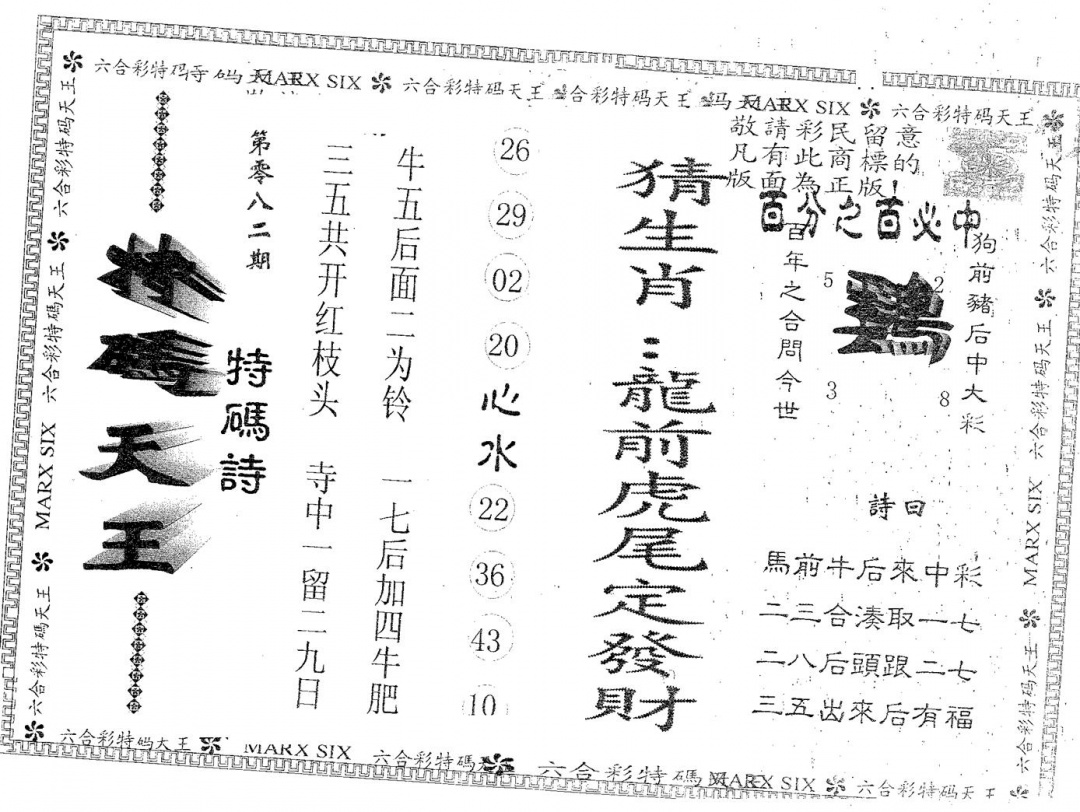 六合彩特码天王
MARX SIX
六合彩特码天王
六合彩特码天王
MARX SIX
六合彩特码天王
敬請彩民留意
凡有此商標的
版面為正版!
百分之百必中
狗前豬后中大彩
2
8
鷄
5
3
百年之合問今世
詩曰
馬前牛后來中彩
二三合湊取一七
二八后頭跟二七
三五出來后有福
猜生肖:龍前虎尾定發財
26
29
02
20
心水
22
36
43
10
牛五后面二为铃 一七后加四牛肥
三五共开红枝头 寺中一留二九日
第零八二期
特碼詩
特碼天王
六合彩特码天王
六合彩特码天王
六合彩特码天王
MARX SIX
六合彩特码天王
六合彩特码天王
六合彩特码天王
MARX SIX
六合彩特码天王
六合彩特码天王
MARX SIX
六合彩特码
六合彩特碼
MARX SIX
六合彩特码天王